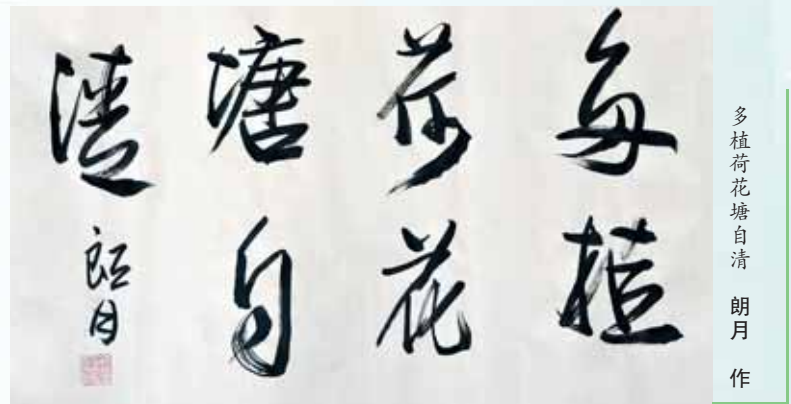 每植
荷花
塘自
清
朗月
多植荷花塘自清 朗月 作